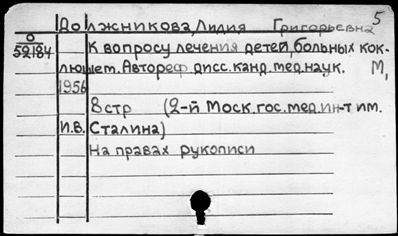 5
Должникова, Лидия Григорьевна
О
52184
К вопросу лечения детей, больных кок-
люшем. Автореф дисс. канд. мед. наук. М,
1956
8 стр (2-й Моск. гос. мед. ин-т им.
И.В. Сталина)
На правах рукописи